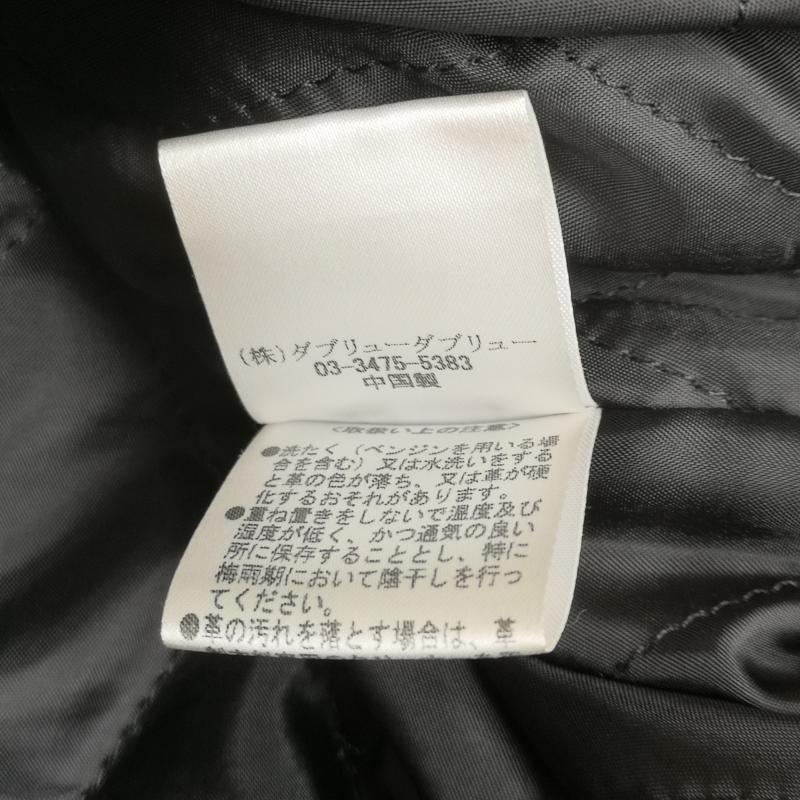 (株)ダブリューダブリュー
03-3475-5383
中国製
<取扱い上の注意>
●洗たく(ベンジンを用いる場
合を含む)又は水洗いをする
と革の色が落ち、又は革が硬
化するおそれがあります。
●重ね置きをしないで温度及び
湿度が低く、かつ通気の良い
所に保存することとし、特に
梅雨期において陰干しを行っ
てください。
●革の汚れを落とす場合は、革